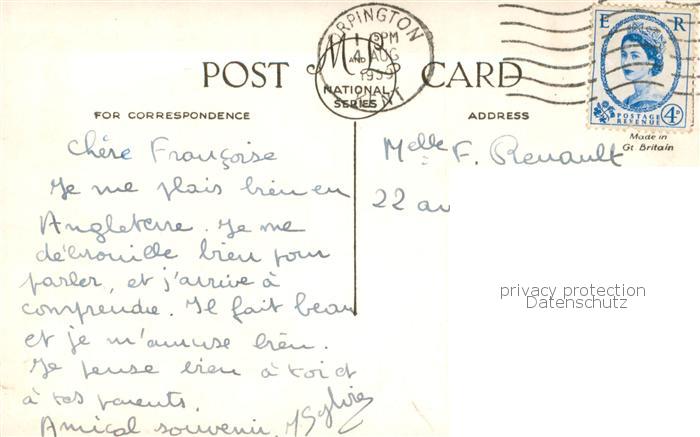 ORPINGTON
5PM
4 AUG
1959
KENT
E R
POSTAGE
REVENUE
4D
POST CARD
M AND L
NATIONAL
SERIES
FOR CORRESPONDENCE
ADDRESS
Made in
Gt Britain
Chère Françoise
Je me plais bien en
Angleterre. Je me
débrouille bien pour
parler, et j'arrive à
comprendre. Il fait beau
et je m'amuse bien.
Je pense bien à toi et
à tes parents.
Amical souvenir. Sylvie
Melle F. Renault
22 av
privacy protection
Datenschutz